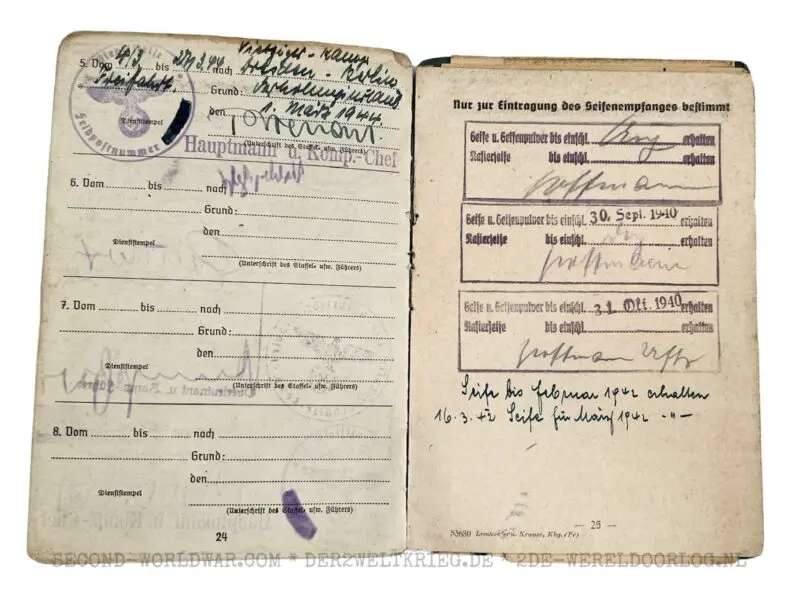 5. Vom 4/3. bis 27/3.44 nach Dresden - Berlin
Freifahrt. Grund: Erholungsurlaub
den 1. März 1944.
Dienststempel
Feldpostnummer
(Unterschrift des Staffel- usw. Führers)
Hauptmann u. Komp.-Chef
6. Vom bis nach
Grund:
den
Dienststempel
(Unterschrift des Staffel- usw. Führers)
7. Vom bis nach
Grund:
den
Dienststempel
(Unterschrift des Staffel- usw. Führers)
8. Vom bis nach
Grund:
den
Dienststempel
(Unterschrift des Staffel- usw. Führers)
24
Nur zur Eintragung des Seifenempfanges bestimmt
Seife u. Seifenpulver bis einschl. Aug erhalten
Rasierseife bis einschl. erhalten
Hoffmann
Seife u. Seifenpulver bis einschl. 30. Sept. 1940 erhalten
Rasierseife bis einschl. erhalten
Hoffmann
Seife u. Seifenpulver bis einschl. 31. Okt. 1940 erhalten
Rasierseife bis einschl. erhalten
Hoffmann Uffz
Seife bis Februar 1942 erhalten
16.3.42 Seife für März 1942 -"-
— 25 —
53680 Kroner, Kbg. (Pr)
SECOND-WORLDWAR.COM * DER2WELTKRIEG.DE * 2DE-WERELDOORLOG.NL